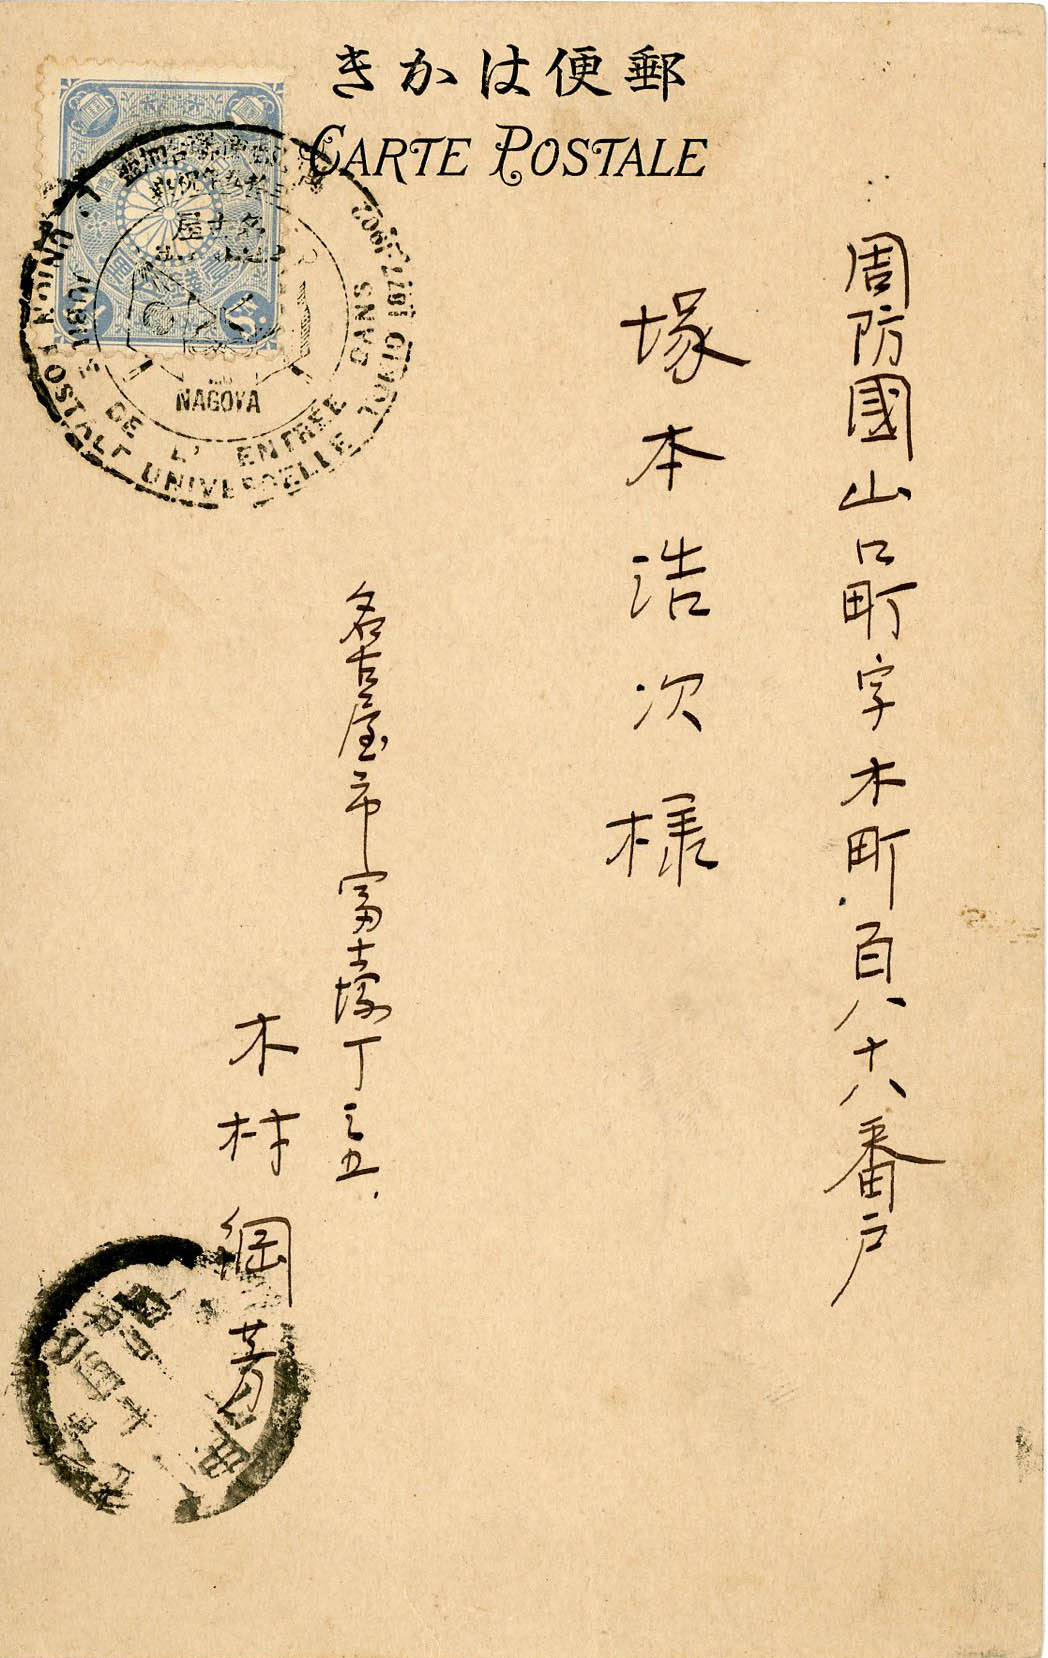 きかは便郵
CARTE POSTALE
周防國山口町字木町百八十八番戸
塚本浩次様
名古屋市富士塚丁三ノ五
木村綱芳
NAGOYA
JUBILÉ DE L' ENTRÉE DANS
L' UNION POSTALE UNIVERSELLE TOKIO 1877-1902